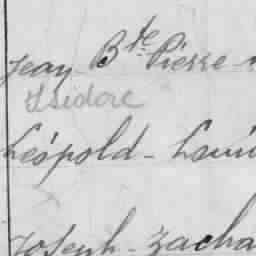 Jean Bte Pierre
Isidore
Léopold - Loui
Joseph - Zacha